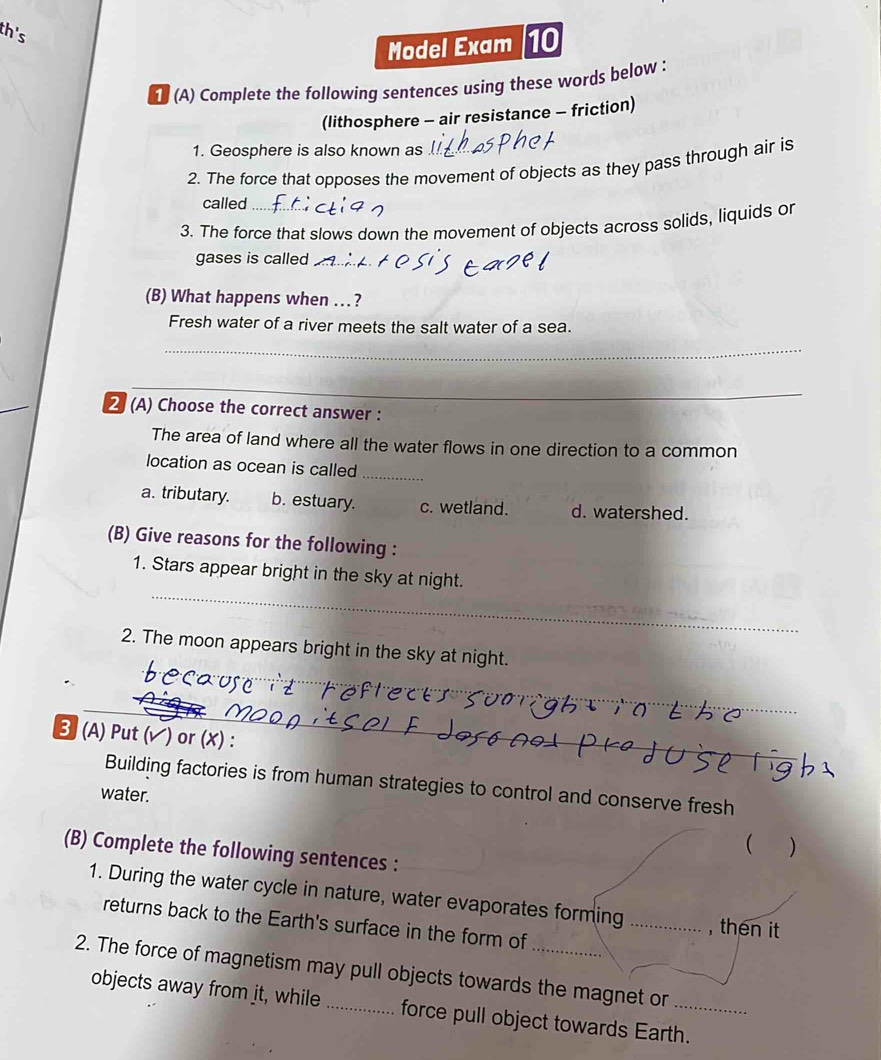 th's
Model Exam 10
1 (A) Complete the following sentences using these words below :
(lithosphere – air resistance – friction)
1. Geosphere is also known as lithospher
2. The force that opposes the movement of objects as they pass through air is
called friction
3. The force that slows down the movement of objects across solids, liquids or
gases is called
(B) What happens when ...?
Fresh water of a river meets the salt water of a sea.
2 (A) Choose the correct answer :
The area of land where all the water flows in one direction to a common
location as ocean is called
a. tributary. b. estuary. c. wetland. d. watershed.
(B) Give reasons for the following :
1. Stars appear bright in the sky at night.
2. The moon appears bright in the sky at night.
because it reflects sunright in the
moon itself dose not produse light
3 (A) Put (✓) or (x) :
Building factories is from human strategies to control and conserve fresh
water.
( )
(B) Complete the following sentences :
1. During the water cycle in nature, water evaporates forming .............. , then it
returns back to the Earth's surface in the form of
2. The force of magnetism may pull objects towards the magnet or
objects away from it, while .............. force pull object towards Earth.